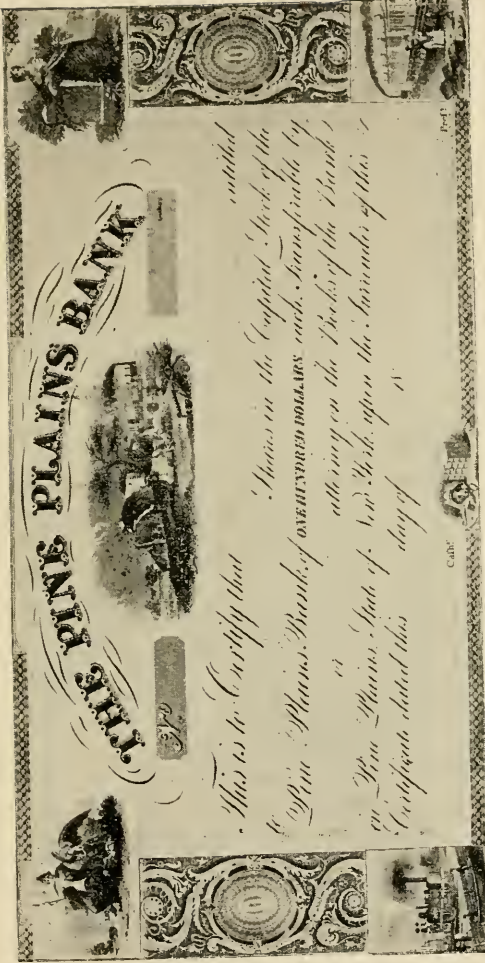 THE PINE PLAINS BANK
No
This is to Certify that entitled
to Shares in the Capital Stock of the
Pine Plains Bank, of ONE HUNDRED DOLLARS each, Transferable by
or attorney on the Books of the Bank
in Pine Plains, State of New York, upon the Surrender of this
Certificate dated this day of 18
Cashr Prest